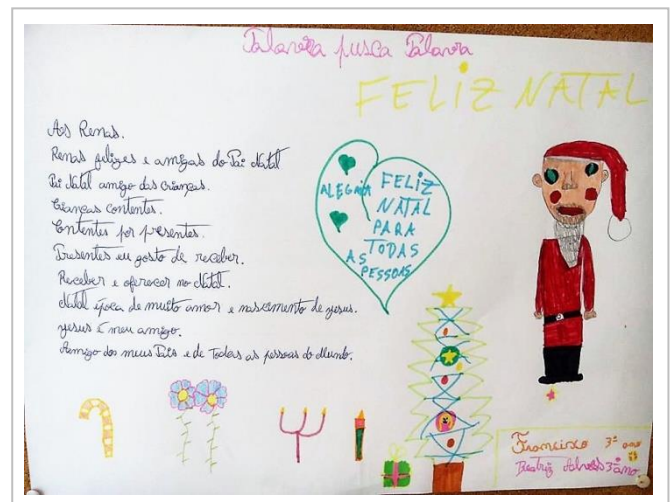 Palavra puxa Palavra
FELIZ NATAL
As Renas.
Renas felizes e amigas do Pai Natal
Pai Natal amigo das crianças.
Crianças contentes.
Contentes por presentes.
Presentes eu gosto de receber.
Receber e oferecer no Natal.
Natal época de muito amor e nascimento de jesus.
jesus é meu amigo.
Amigo dos meus Pais e de Todas as pessoas do Mundo.
ALEGRIA
FELIZ
NATAL
PARA
TODAS
AS
PESSOAS
Francisco 3º ano
Beatriz Alves 3º ano